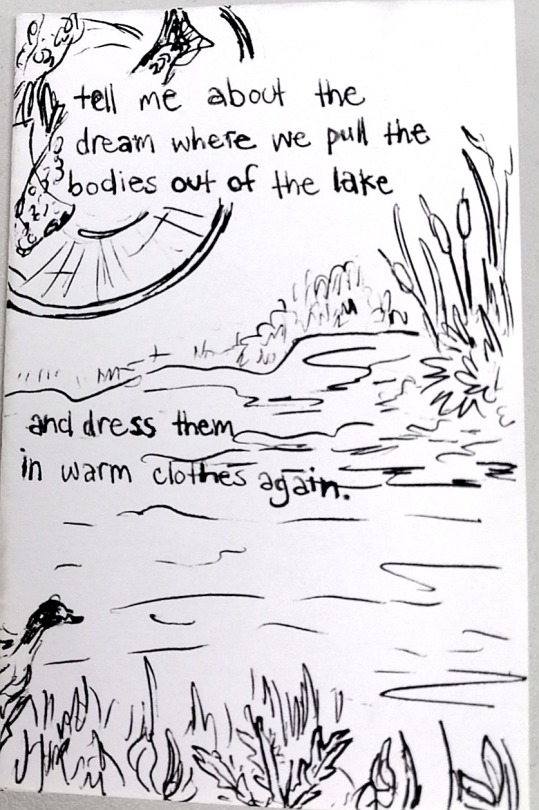 tell me about the
dream where we pull the
bodies out of the lake
and dress them
in warm clothes again.